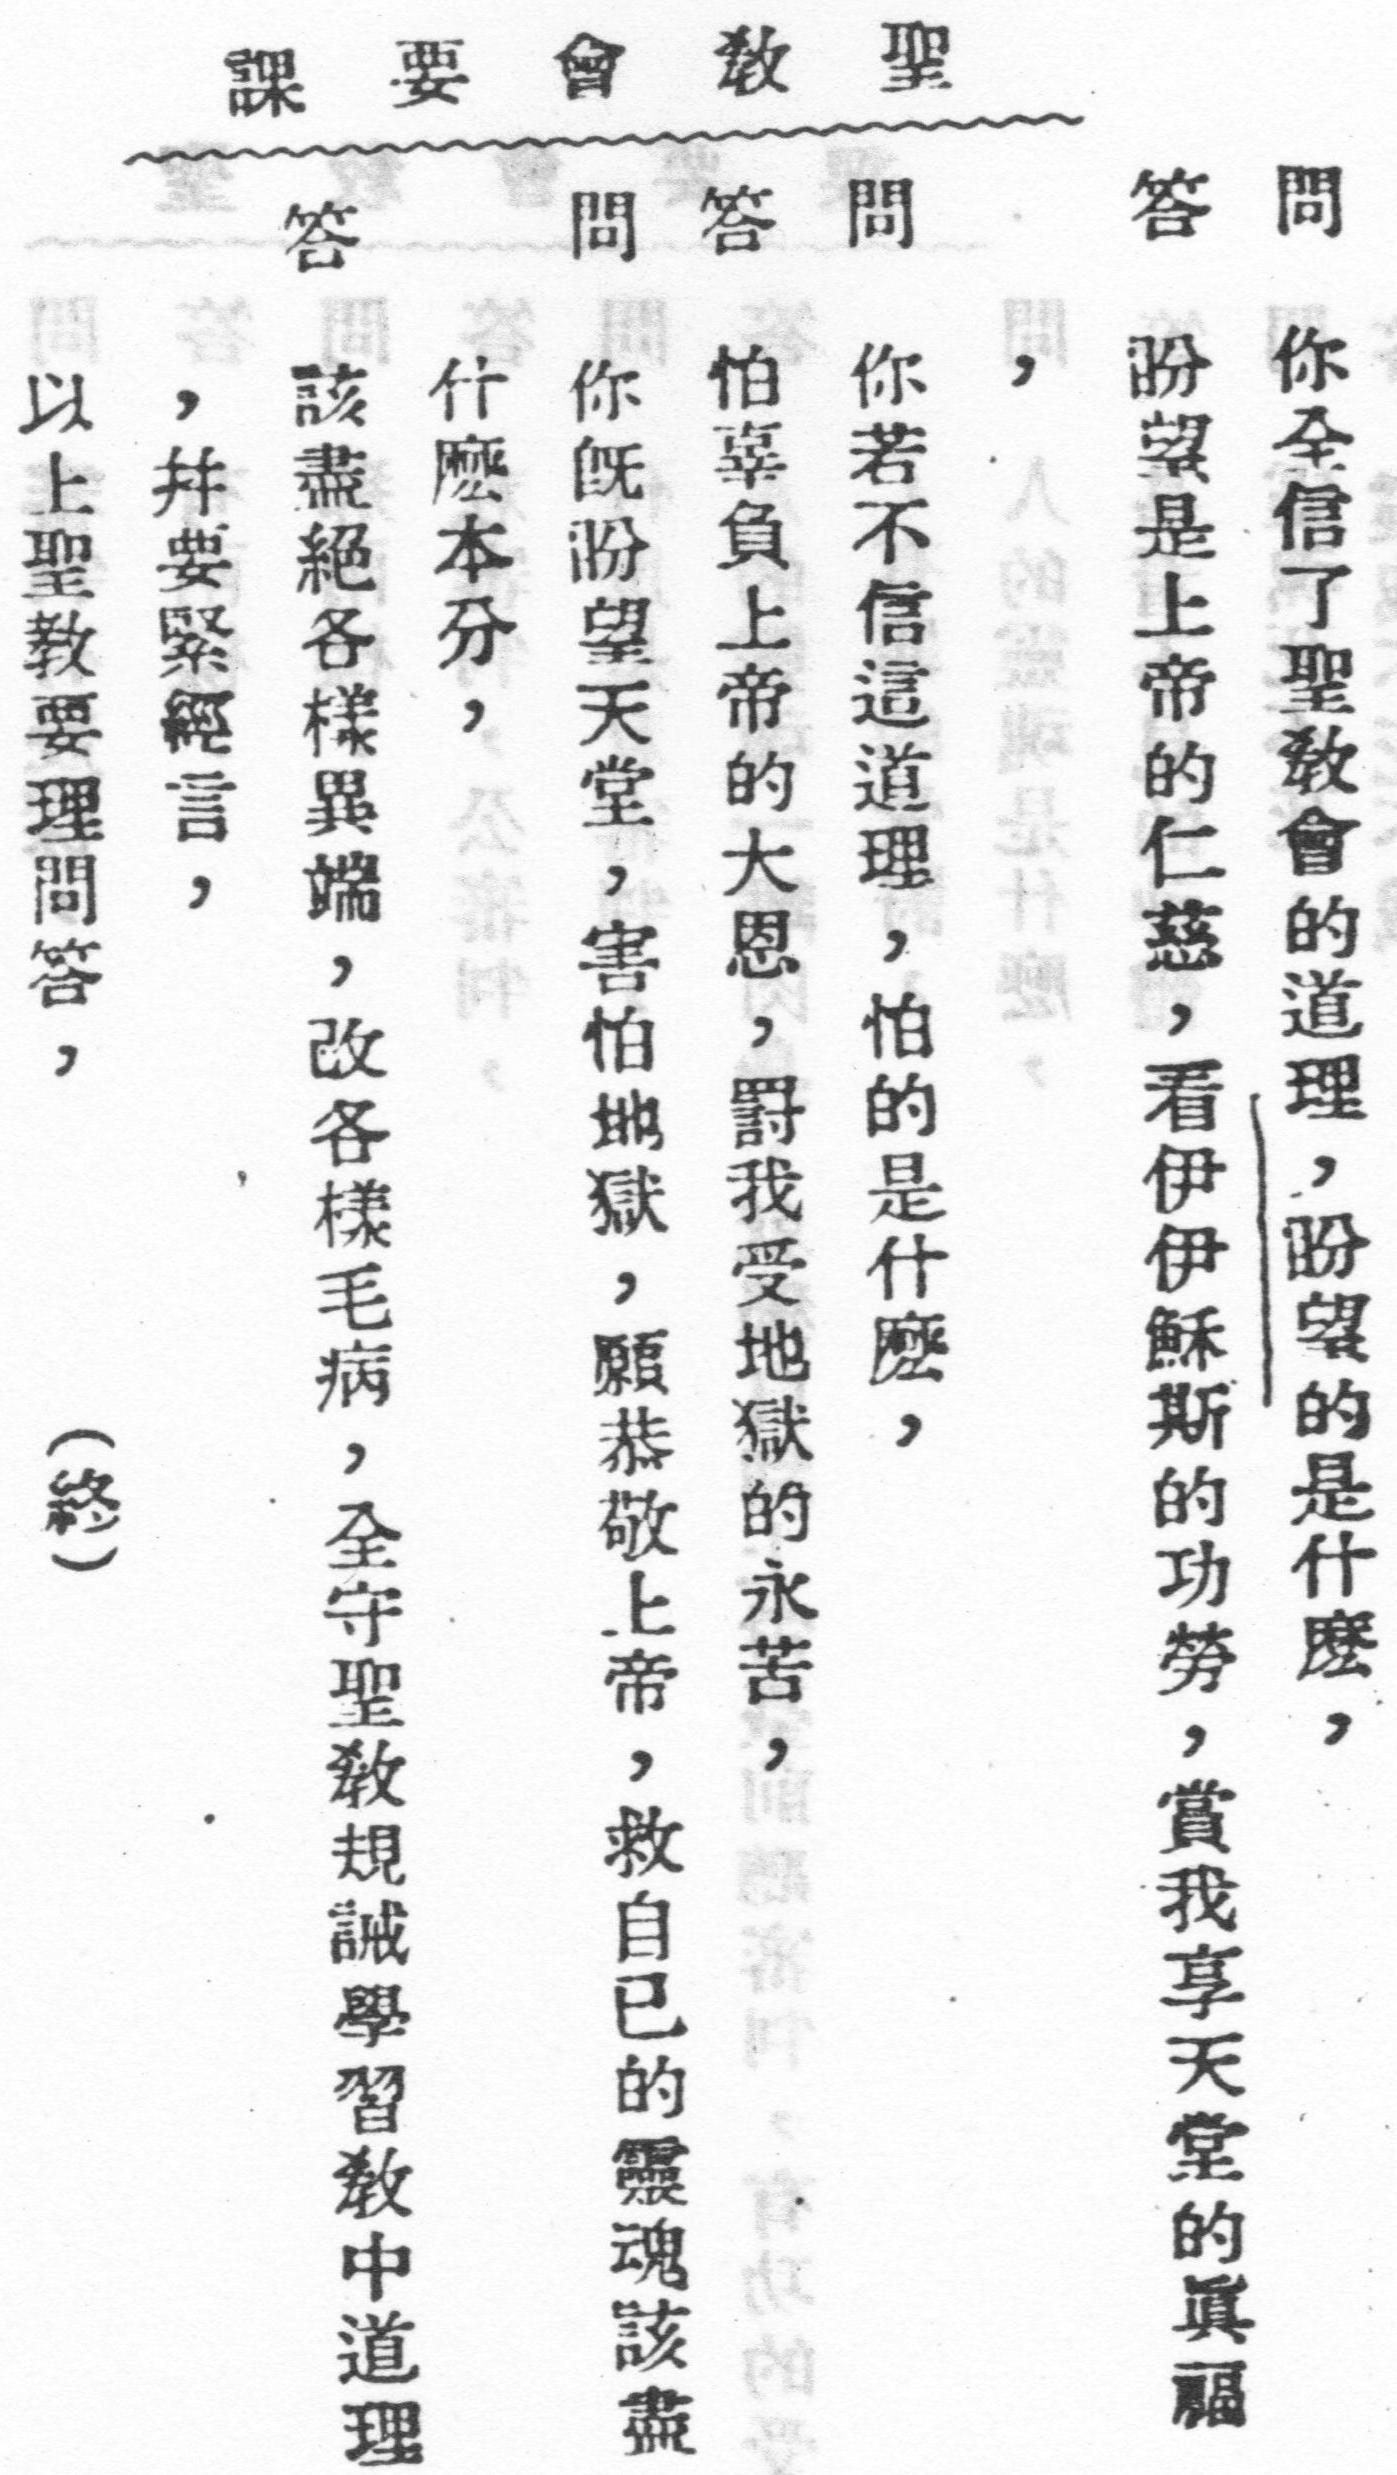 聖教會要課
問 你全信了聖教會的道理，盼望的是什麽，
答 盼望是上帝的仁慈，看伊伊穌斯的功勞，賞我享天堂的眞福
，
問 你若不信這道理，怕的是什麽，
答 怕辜負上帝的大恩，罸我受地獄的永苦，
問 你旣盼望天堂，害怕地獄，願恭敬上帝，救自已的靈魂該盡
什麽本分，
答 該盡絕各樣異端，改各樣毛病，全守聖教規誡學習教中道理
，幷要緊經言，
以上聖教要理問答， （終）